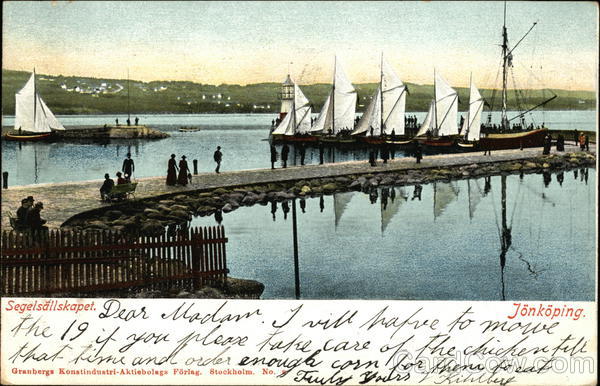 Segelsällskapet.
Jönköping.
Dear Madam. I vill hafve to mowe
the 19 if you please take care of the chicken till
that time and order enough corn for them to eat
Granbergs Konstindustri-Aktiebolags Förlag. Stockholm. No.
Truly Yours
CardCow.com